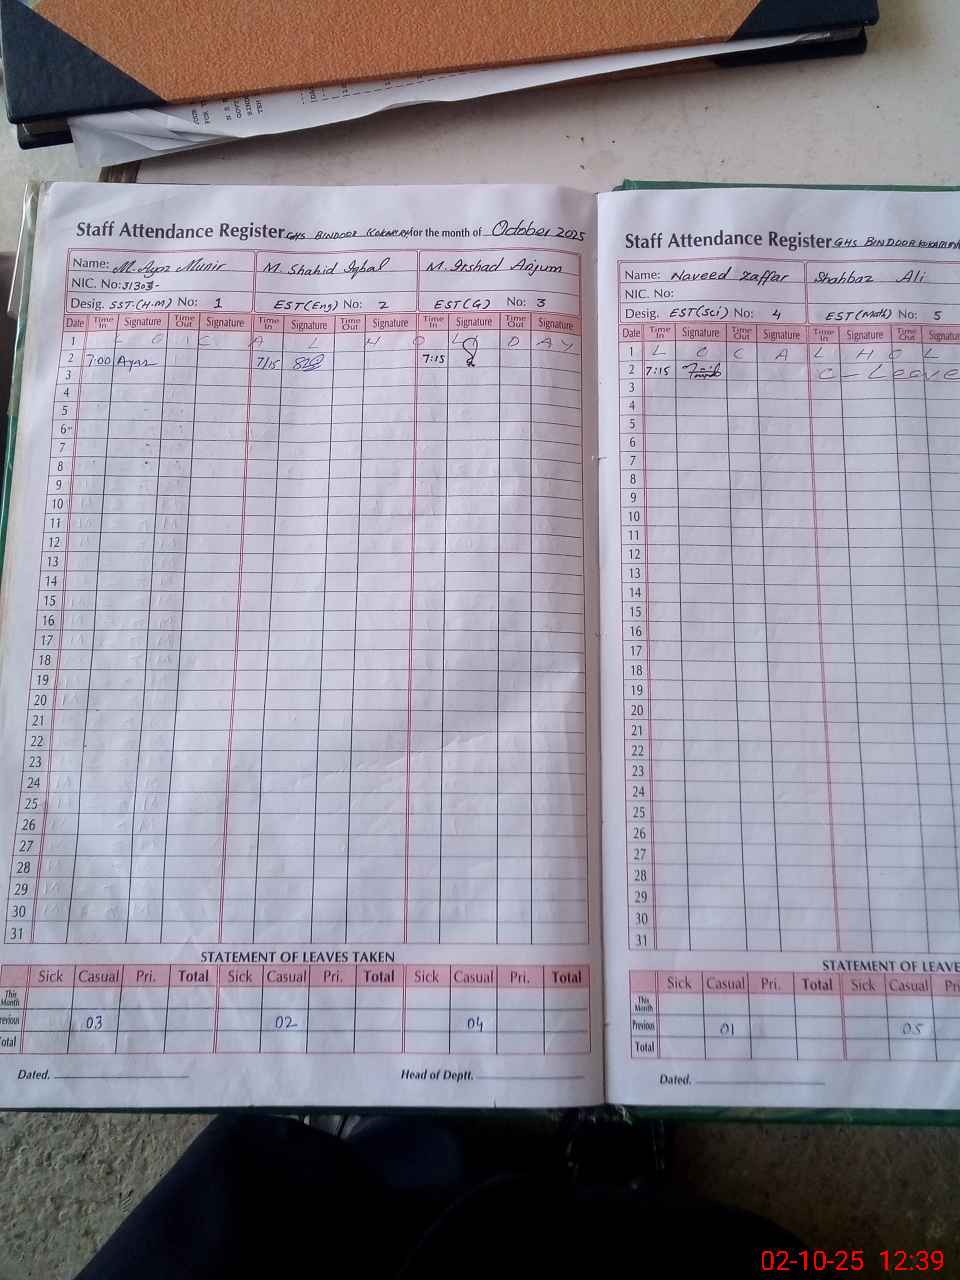 Staff Attendance Register GHS BINDOOR KOKMANG for the month of October 2025
Name: M. Ayaz Munir M. Shahid Iqbal M. Irshad Anjum
NIC. No: 31303-
Desig. SST (H.M) No: 1 EST (Eng) No: 2 EST (G) No: 3
Date Time In Signature Time Out Signature Time In Signature Time Out Signature Time In Signature Time Out Signature
1 L O C A L H O L D AY
2 7:00 Ayaz 7/15 7:15
3
4
5
6
7
8
9
10
11
12
13
14
15
16
17
18
19
20
21
22
23
24
25
26
27
28
29
30
31
STATEMENT OF LEAVES TAKEN
Sick Casual Pri. Total Sick Casual Pri. Total Sick Casual Pri. Total
This Month
Previous 03 02 04
Total
Dated. Head of Deptt.
Staff Attendance Register GHS BINDOOR
Name: Naveed Zaffar Shahbaz Ali
NIC. No:
Desig. EST (Sci) No: 4 EST (Math) No: 5
Date Time In Signature Time Out Signature Time In Signature Time Out
1 L O C A L H O L
2 7:15 C-Leave
3
4
5
6
7
8
9
10
11
12
13
14
15
16
17
18
19
20
21
22
23
24
25
26
27
28
29
30
31
STATEMENT OF LEAVE
Sick Casual Pri. Total Sick Casual
This Month
Previous 01 05
Total
Dated.
02-10-25 12:39